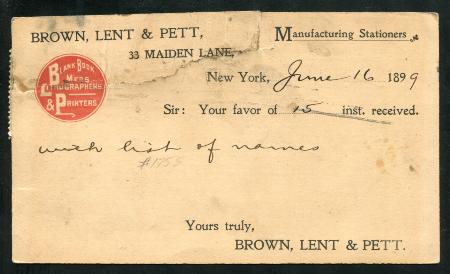 BROWN, LENT & PETT,
Manufacturing Stationers
33 MAIDEN LANE,
BLANK BOOK
MFRS
LITHOGRAPHERS
& PRINTERS
New York, June 16 1899
Sir: Your favor of 15 inst. received.
with list of names
#1755
Yours truly,
BROWN, LENT & PETT.